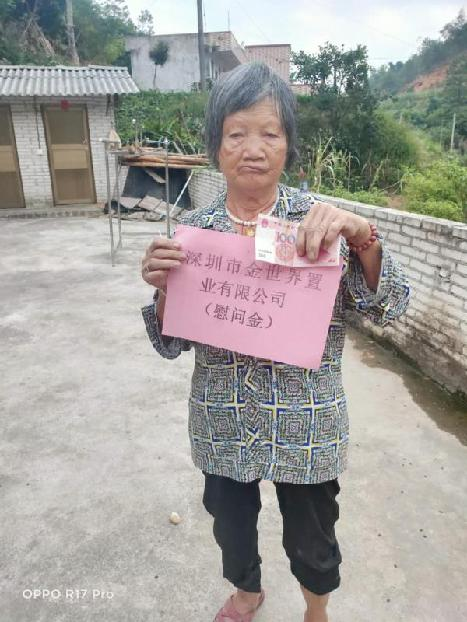 深圳市金世界置
业有限公司
（慰问金）
100
OPPO R17 Pro